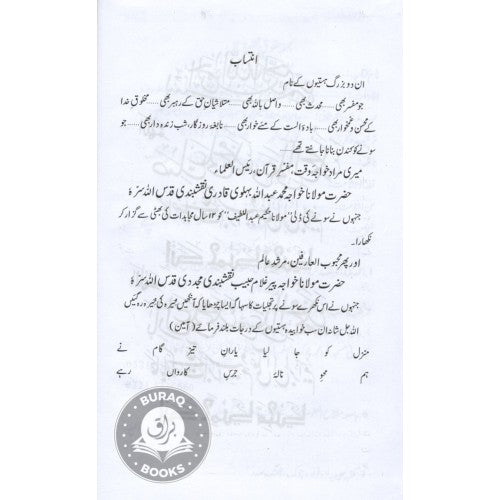 انتساب
ان دو بزرگ ہستیوں کے نام
جو مفسر بھی ...... محدث بھی ...... واصل باللہ بھی ...... متلاشیان حق کے رہبر بھی ...... مخلوق خدا
کے محسن و غمخوار بھی ...... بادۂ الست کے مے خوار بھی ...... نابغۂ روزگار، شب زندہ دار بھی ...... جو
سونے کو کندن بنانا جانتے تھے ......
میری مراد خواجۂ وقت، مفسر قرآن، رئیس العلماء
حضرت مولانا خواجہ محمد عبداللہ بہلوی قادری نقشبندی قدس اللہ سرہٗ
جنہوں نے سونے کی ڈلی "مولانا حکیم عبداللطیف" کو ۱۲ سال مجاہدات کی بھٹی سے گزار کر
نکھارا۔
اور پھر محبوب العارفین، مرشد عالم
حضرت مولانا خواجہ پیر غلام حبیب نقشبندی مجددی قدس اللہ سرہٗ
جنہوں نے اس نکھرے سونے پر تجلیات کا سہاگہ ایسا چڑھایا کہ آنکھیں خیرہ کی خیرہ رہ گئیں
اللہ جل شانہ ان سب خوابیدہ ہستیوں کے درجات بلند فرمائے (آمین)
منزل کو جا لیا یاران تیز گام نے
ہم محو نالۂ جرس کارواں رہے
BURAQ
براق
BOOKS